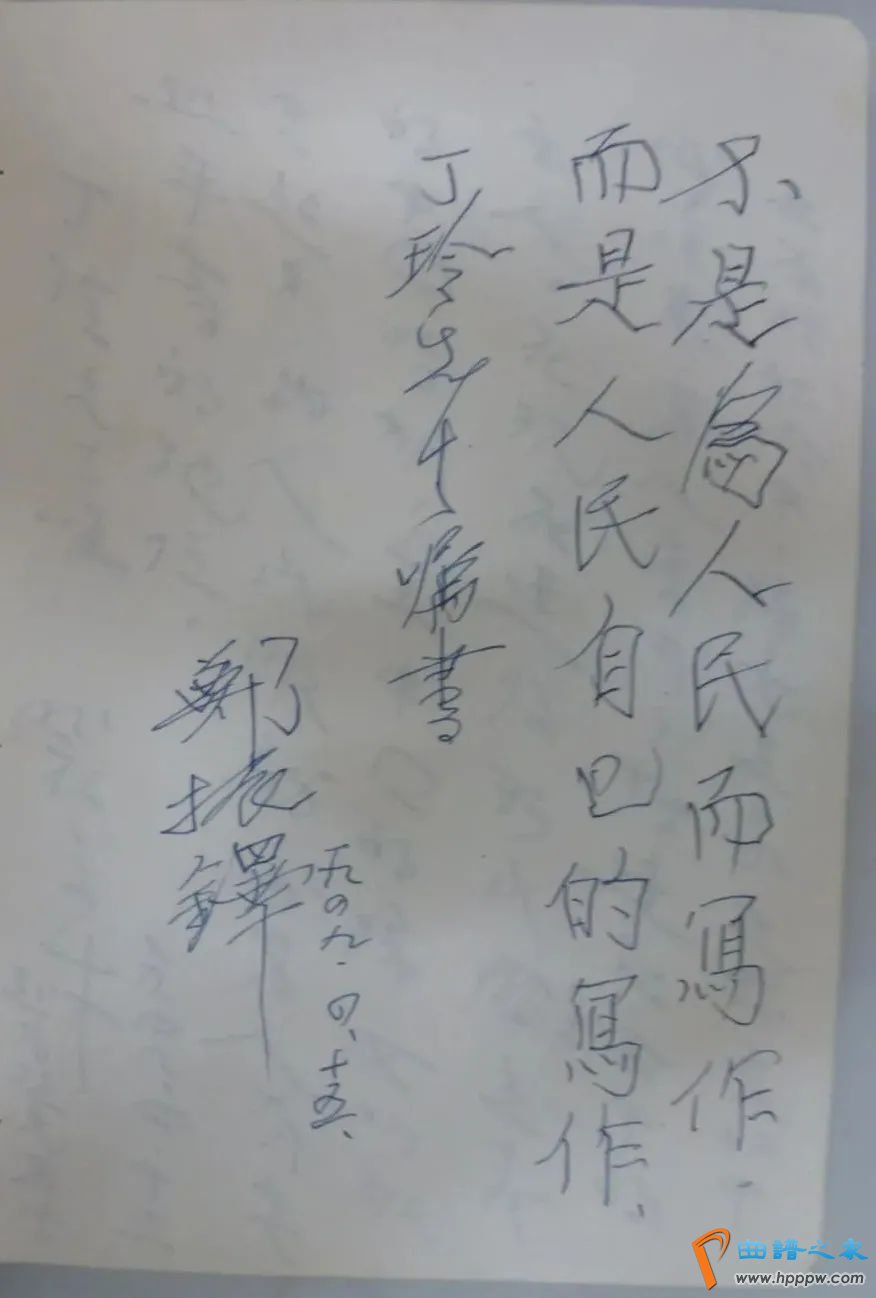 不是為人民而寫作.
而是人民自己的寫作、
丁玲先生囑書
鄭振鐸
一九四九.四、十五、
曲譜之家
www.hppw.com